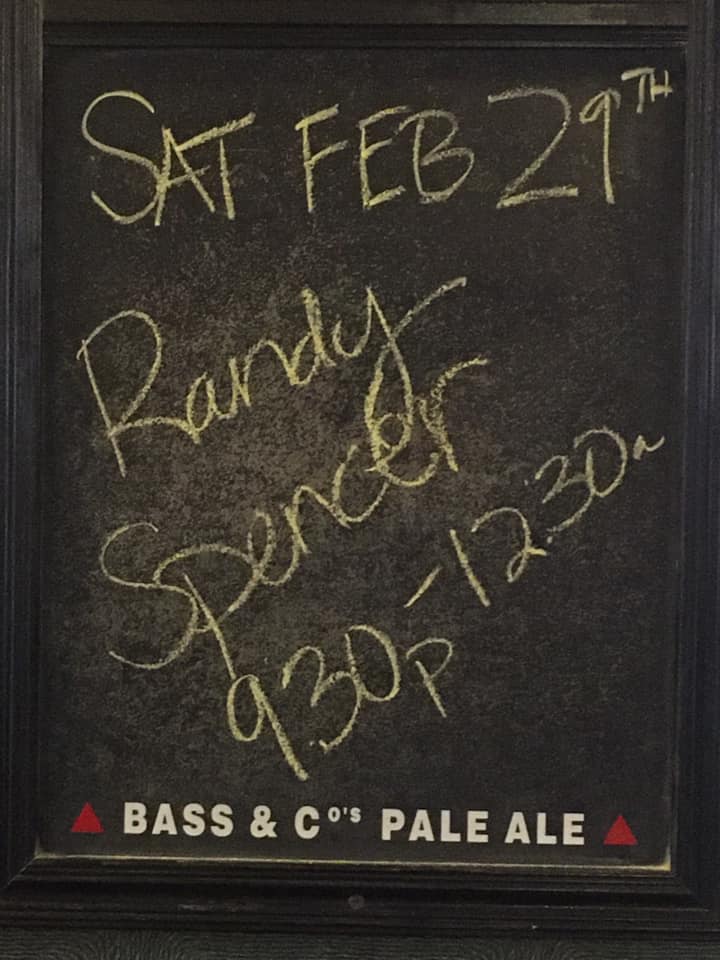 SAT FEB 29TH
Randy
Spencer
9.30p - 12.30a
BASS & CO'S PALE ALE